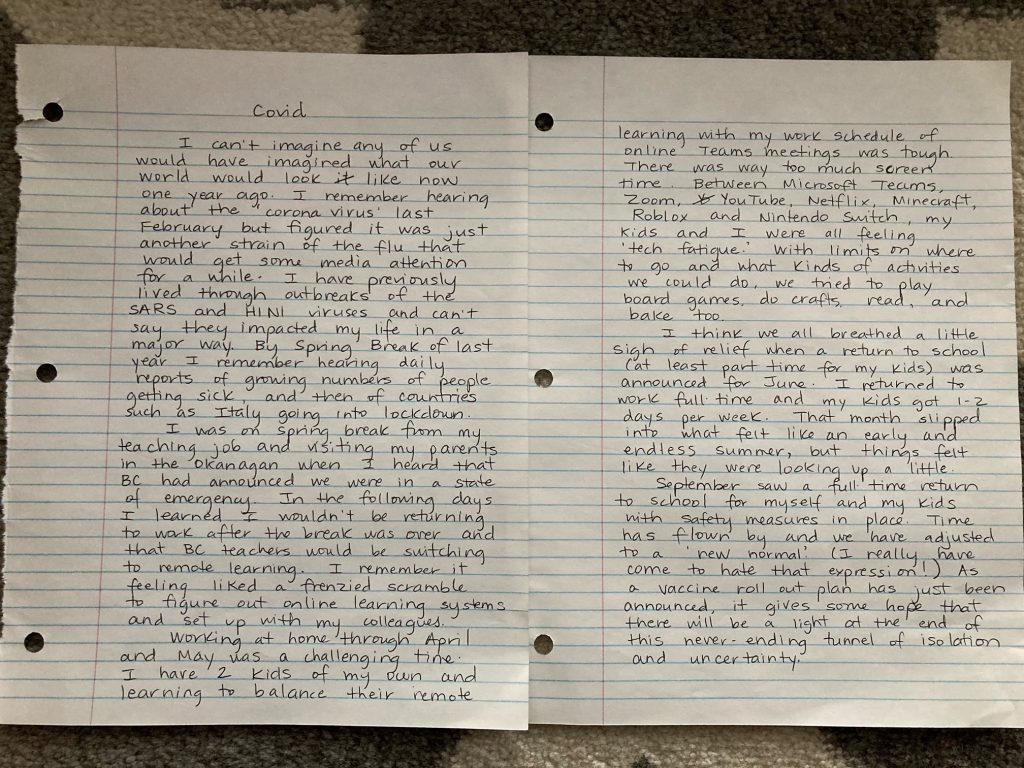 Covid
I can't imagine any of us
would have imagined what our
world would look it like now
one year ago. I remember hearing
about the 'corona virus' last
February but figured it was just
another strain of the flu that
would get some media attention
for a while. I have previously
lived through outbreaks of the
SARS and H1N1 viruses and can't
say they impacted my life in a
major way. By Spring Break of last
year I remember hearing daily
reports of growing numbers of people
getting sick, and then of countries
such as Italy going into lockdown.
I was on spring break from my
teaching job and visiting my parents
in the Okanagan when I heard that
BC had announced we were in a state
of emergency. In the following days
I learned I wouldn't be returning
to work after the break was over and
that BC teachers would be switching
to remote learning. I remember it
feeling liked a frenzied scramble
to figure out online learning systems
and set up with my colleagues.
Working at home through April
and May was a challenging time.
I have 2 kids of my own and
learning to balance their remote
learning with my work schedule of
online Teams meetings was tough.
There was way too much screen
time. Between Microsoft Teams,
Zoom, YouTube, Netflix, Minecraft,
Roblox and Nintendo Switch, my
kids and I were all feeling
'tech fatigue.' With limits on where
to go and what kinds of activities
we could do, we tried to play
board games, do crafts, read, and
bake too.
I think we all breathed a little
sigh of relief when a return to school
(at least part time for my kids) was
announced for June. I returned to
work full time and my kids got 1-2
days per week. That month slipped
into what felt like an early and
endless summer, but things felt
like they were looking up a little.
September saw a full time return
to school for myself and my kids
with safety measures in place. Time
has flown by and we have adjusted
to a 'new normal.' (I really have
come to hate that expression!) As
a vaccine roll out plan has just been
announced, it gives some hope that
there will be a light at the end of
this never-ending tunnel of isolation
and uncertainty.